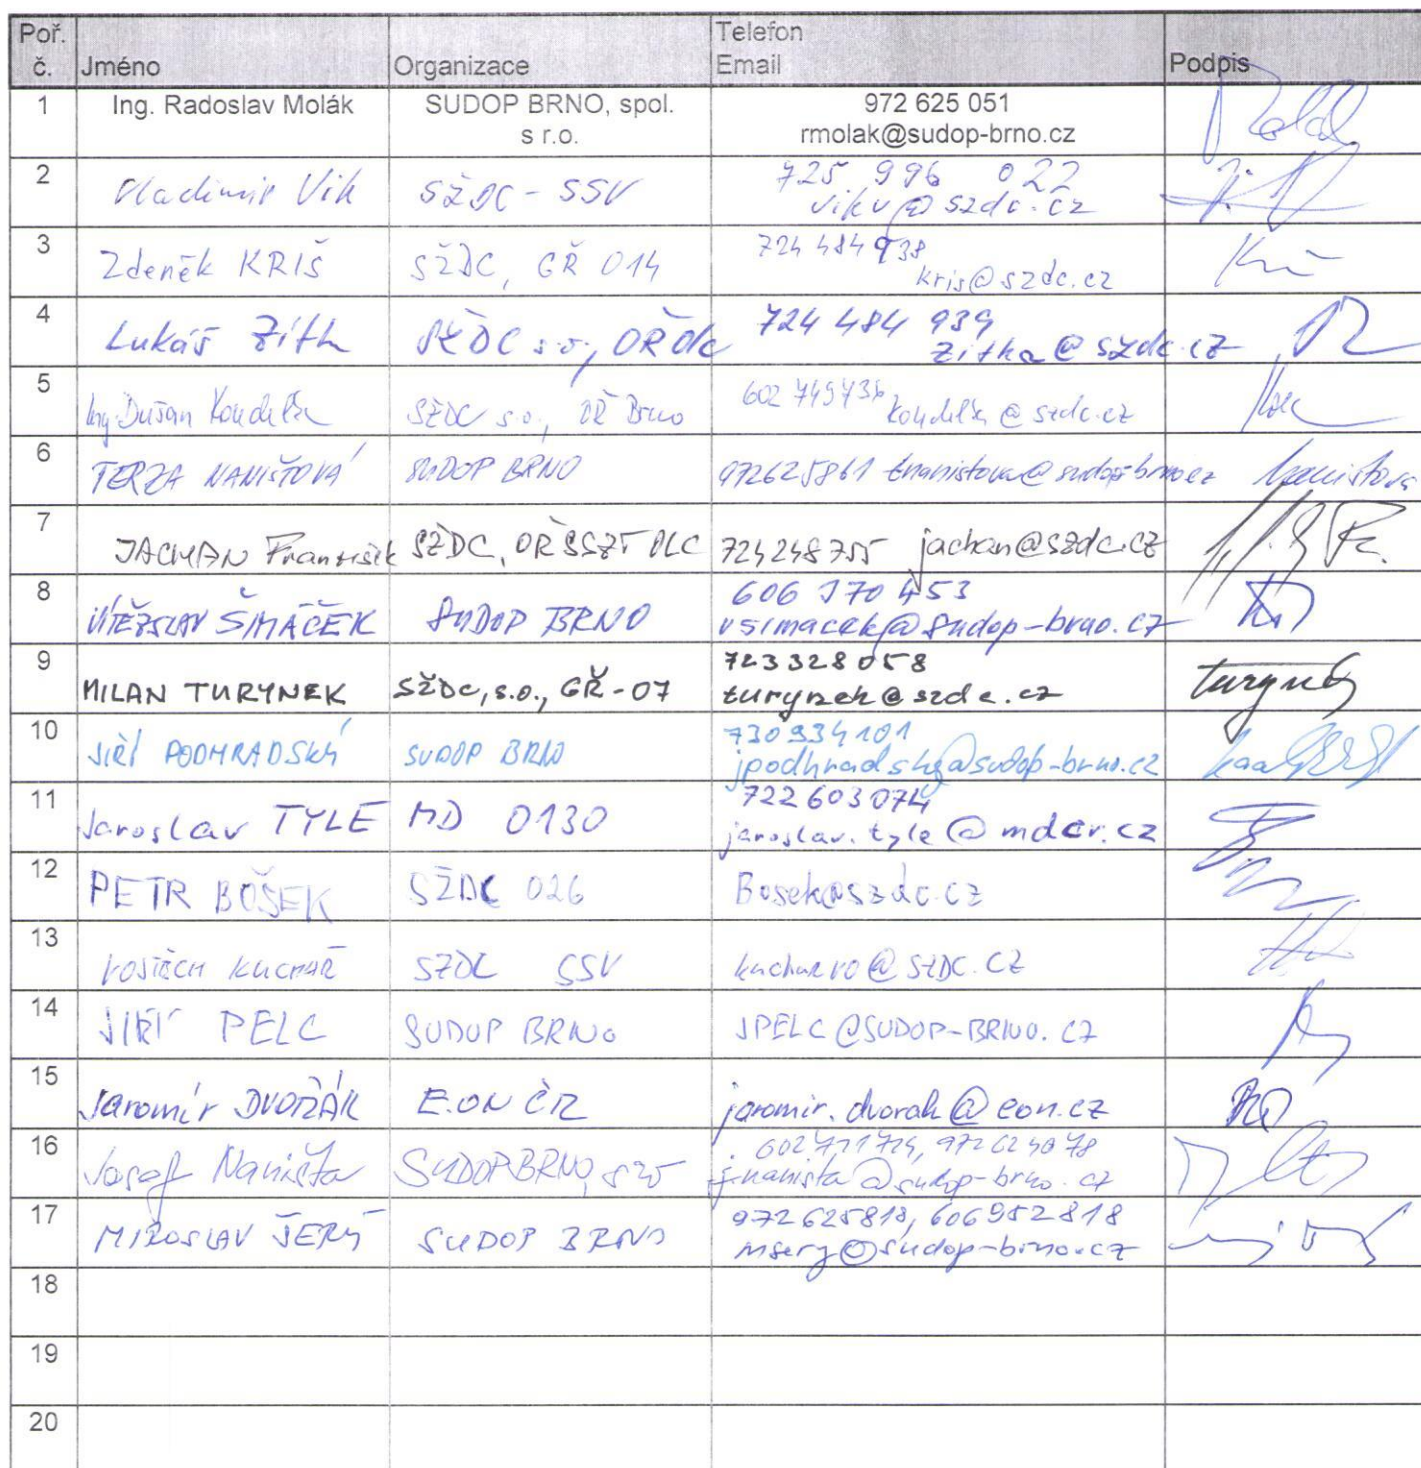 Poř. č. Jméno Organizace Telefon Email Podpis
1 Ing. Radoslav Molák SUDOP BRNO, spol. s r.o. 972 625 051 rmolak@sudop-brno.cz
2 Vladimír Vik SŽDC - SSV 725 996 022 vikv@szdc.cz
3 Zdeněk KRIŠ SŽDC, GŘ O14 724 484 938 kris@szdc.cz
4 Lukáš SŽDC s.o., OŘ 724 484 939 zitka@szdc.cz
5 Ing. Dušan Koudelka SŽDC s.o., OŘ Brno koudelka@szdc.cz
6 NANIŠTOVÁ SUDOP BRNO 972625861 tnanistova@sudop-brno.cz
7 JACHAN František SŽDC, OŘ SSZT OLC 724248755 jachan@szdc.cz
8 VÍTĚZSLAV ŠIMÁČEK SUDOP BRNO 606 170 453 vsimacek@sudop-brno.cz
9 MILAN TURYNEK SŽDC, s.o., GŘ-07 723328058 turynek@szdc.cz
10 JIŘÍ PODHRADSKÝ SUDOP BRNO 730934101 jpodhradsky@sudop-brno.cz
11 Jaroslav TYLE MD 0130 722 603 074 jaroslav.tyle@mdcr.cz
12 PETR BOŠEK SŽDC 026 Bosek@szdc.cz
13 VOJTĚCH KUCHAŘ SŽDC SSV kucharvo@SŽDC.CZ
14 JIŘÍ PELC SUDOP BRNO JPELC@SUDOP-BRNO.CZ
15 Jaromír DVOŘÁK E.ON ČR jaromir.dvorak@eon.cz
16 Josef Naništa SUDOP BRNO, jnanista@sudop-brno.cz
17 MIROSLAV ŠERÝ SUDOP BRNO 972625818, 606952818 msery@sudop-brno.cz
18
19
20